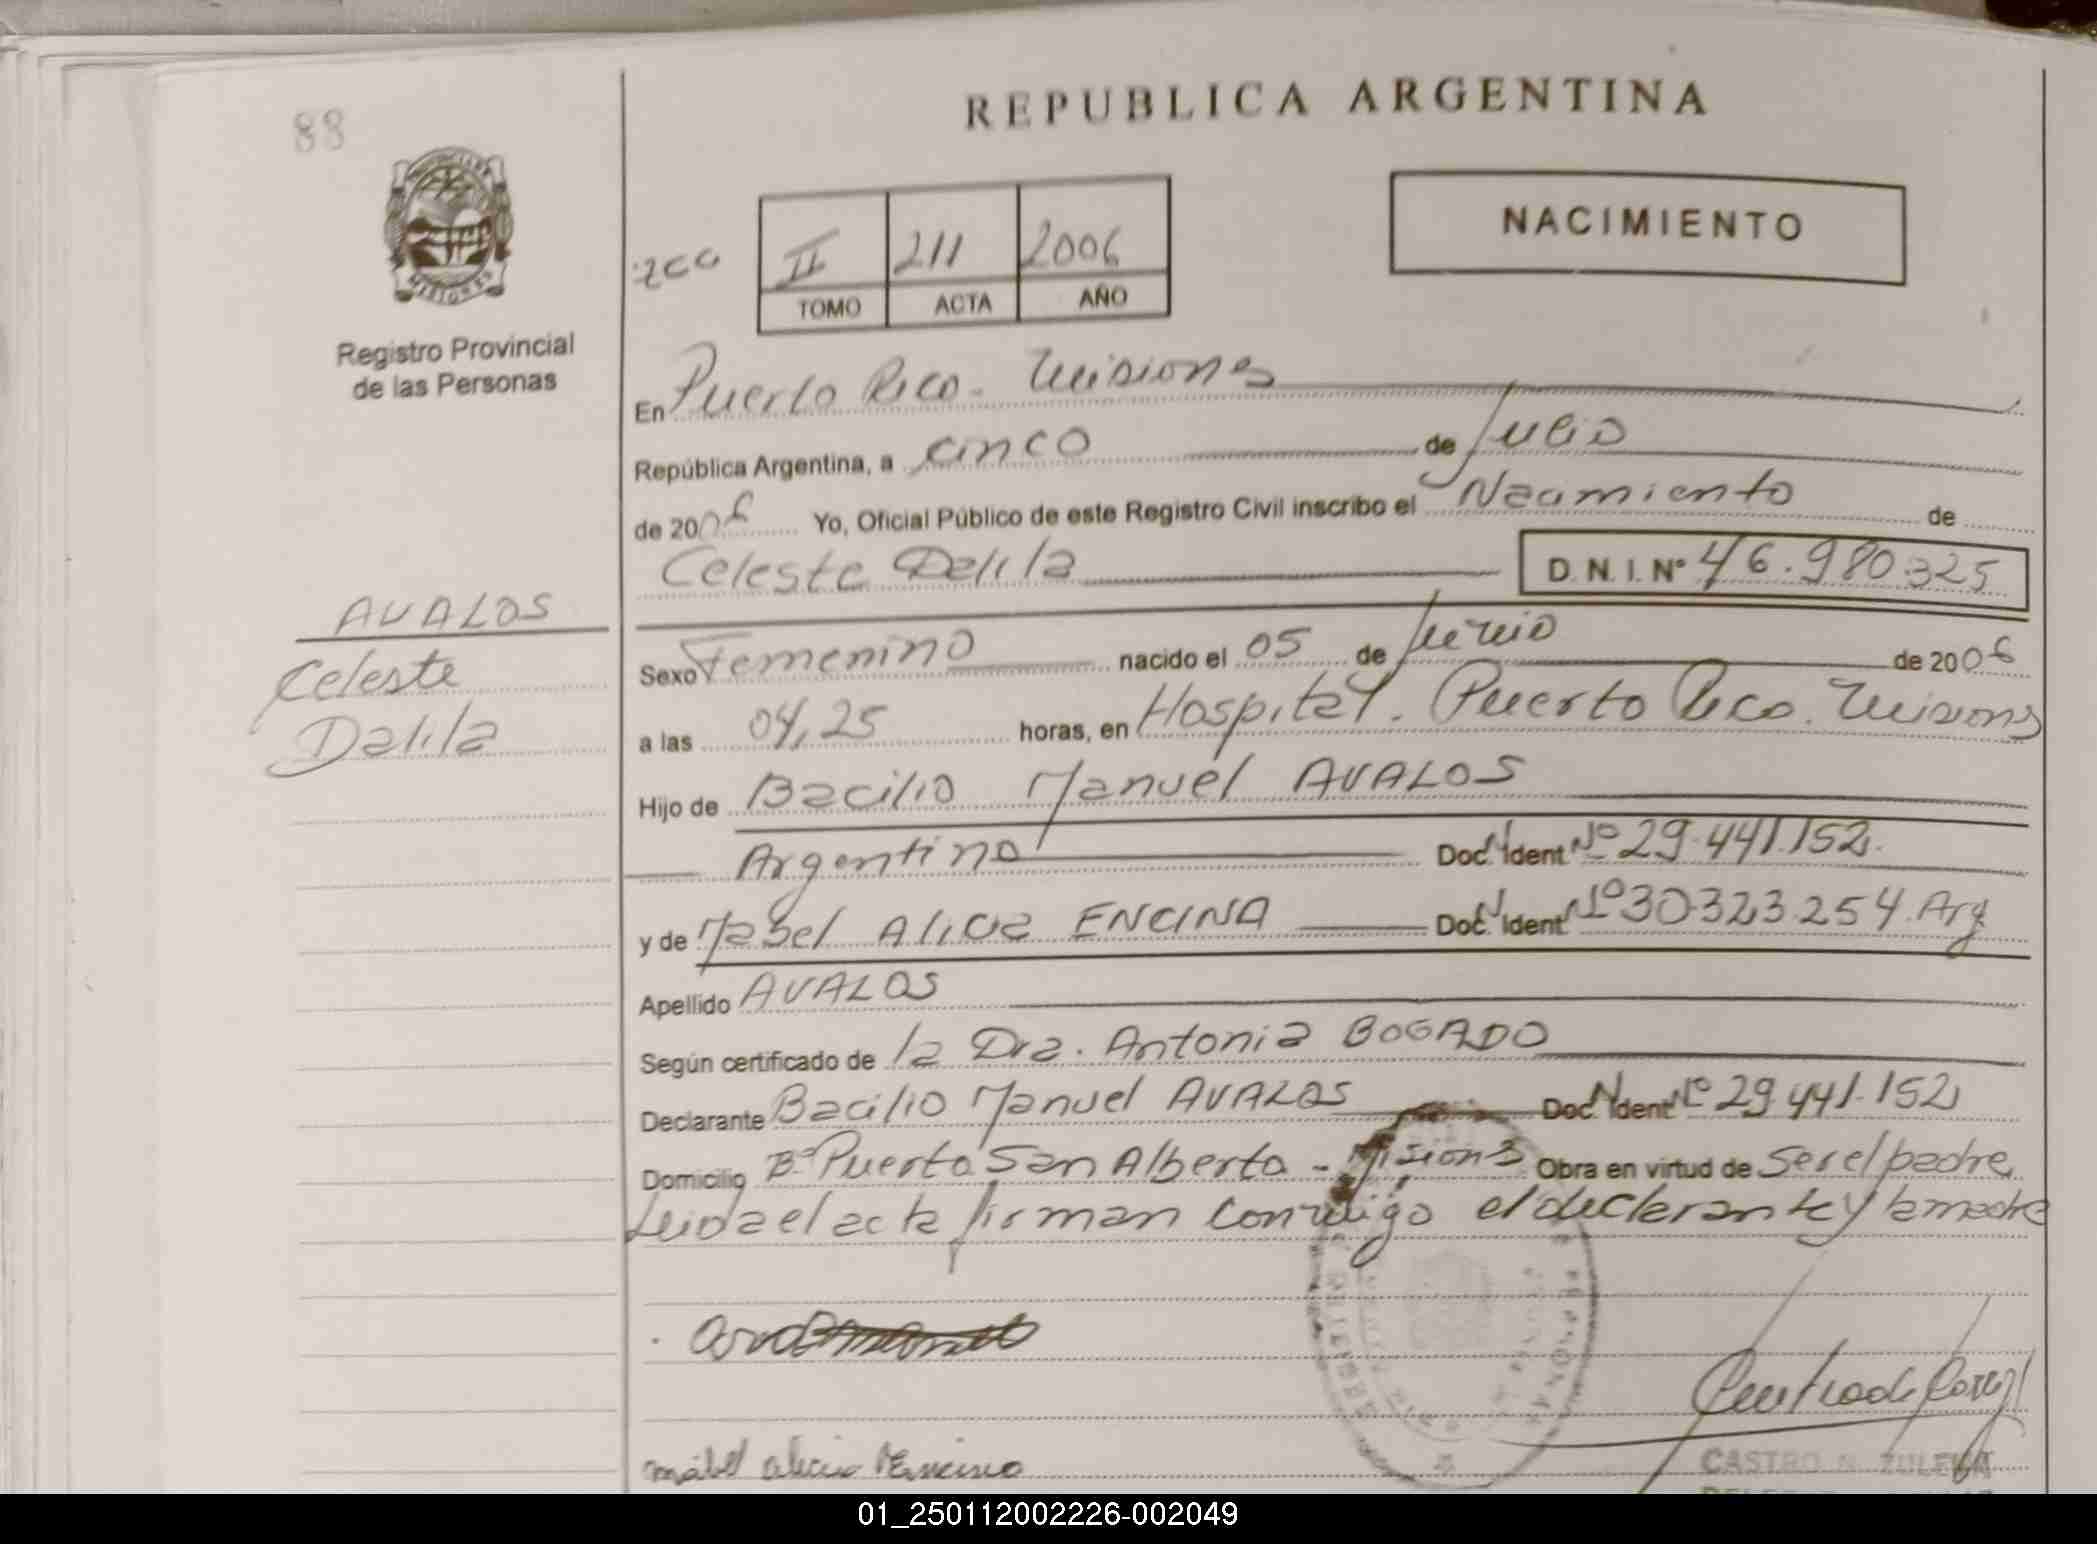 88
REPUBLICA ARGENTINA
MISIONES
Registro Provincial
de las Personas
II 211 2006
TOMO ACTA AÑO
NACIMIENTO
En Puerto Rico - Misiones
República Argentina, a cinco de Julio
de 2006 Yo, Oficial Público de este Registro Civil inscribo el Nacimiento de
Celeste Dalila D.N.I. Nº 46.980.325
AVALOS
Celeste
Dalila
Sexo Femenino nacido el 05 de Junio de 2006
a las 04,25 horas, en Hospital. Puerto Rico. Misiones
Hijo de Bacilio Manuel AVALOS
Argentino Doc. Ident Nº 29.441.152.
y de Mabel Alicia ENCINA Doc. Ident Nº 30.323.254. Arg
Apellido AVALOS
Según certificado de la Dra. Antonia BOGADO
Declarante Bacilio Manuel AVALOS Doc. Ident Nº 29.441.152
Domicilio Bº Puerto San Alberto - Misiones Obra en virtud de ser el padre
Leida el acta firman conmigo el declarante y la madre
CASTRO N. ZULEMA
01_250112002226-002049